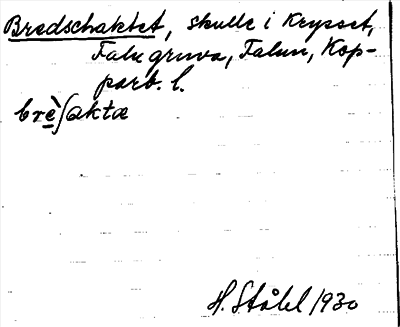 Bredschaktet, skulle i Krysset,
Falu gruva, Falun, Kop-
parb. l.
brè̱ʃaktæ
H. Ståhl 1930